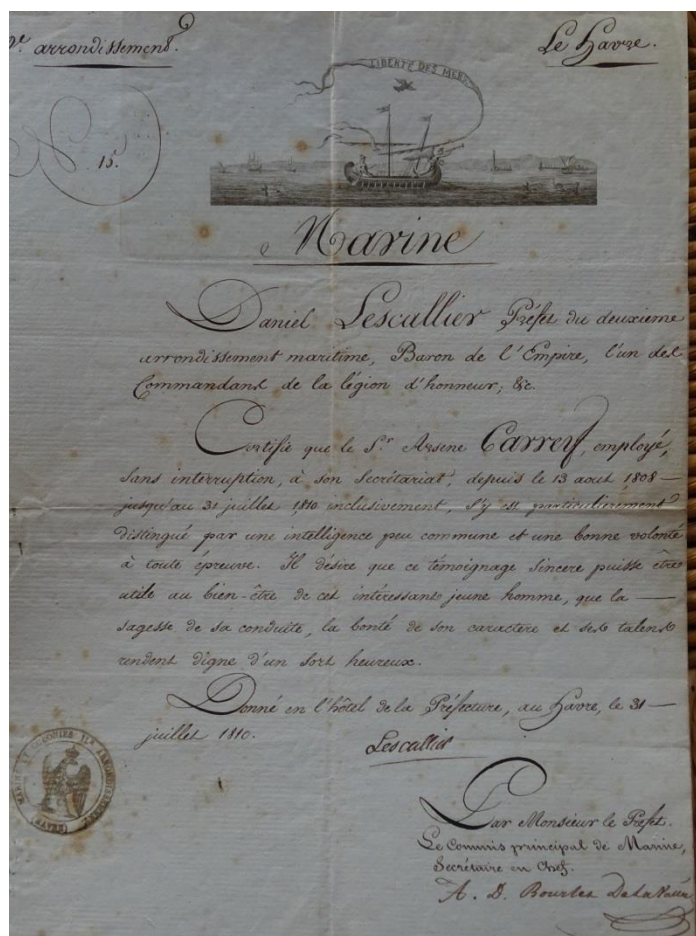 arrondissement.
Le Havre.
LIBERTÉ DES MERS
N 15.
Marine
Daniel Lescallier Préfet du deuxieme
arrondissement maritime, Baron de l'Empire, l'un des
Commandans de la légion d'honneur, &c.
Certifie que le Sr. Arsene Carrey, employé,
sans interruption, à son Secrétariat, depuis le 13 aout 1808 —
jusqu'au 31 juillet 1810 inclusivement, s'y est particulierement
distingué par une intelligence peu commune et une bonne volonté
à toute épreuve. Il désire que ce témoignage sincere puisse être
utile au bien-être de cet intéressant jeune homme, que la —
sagesse de sa conduite, la bonté de son caractere et ses talens
rendent digne d'un sort heureux.
Donné en l'hôtel de la Préfecture, au Havre, le 31 —
juillet 1810.
Lescallier
MARINE ET COLONIES
Par Monsieur le Préfet.
Le Commis principal de Marine,
Secrétaire en Chef.
A. D. Bourles